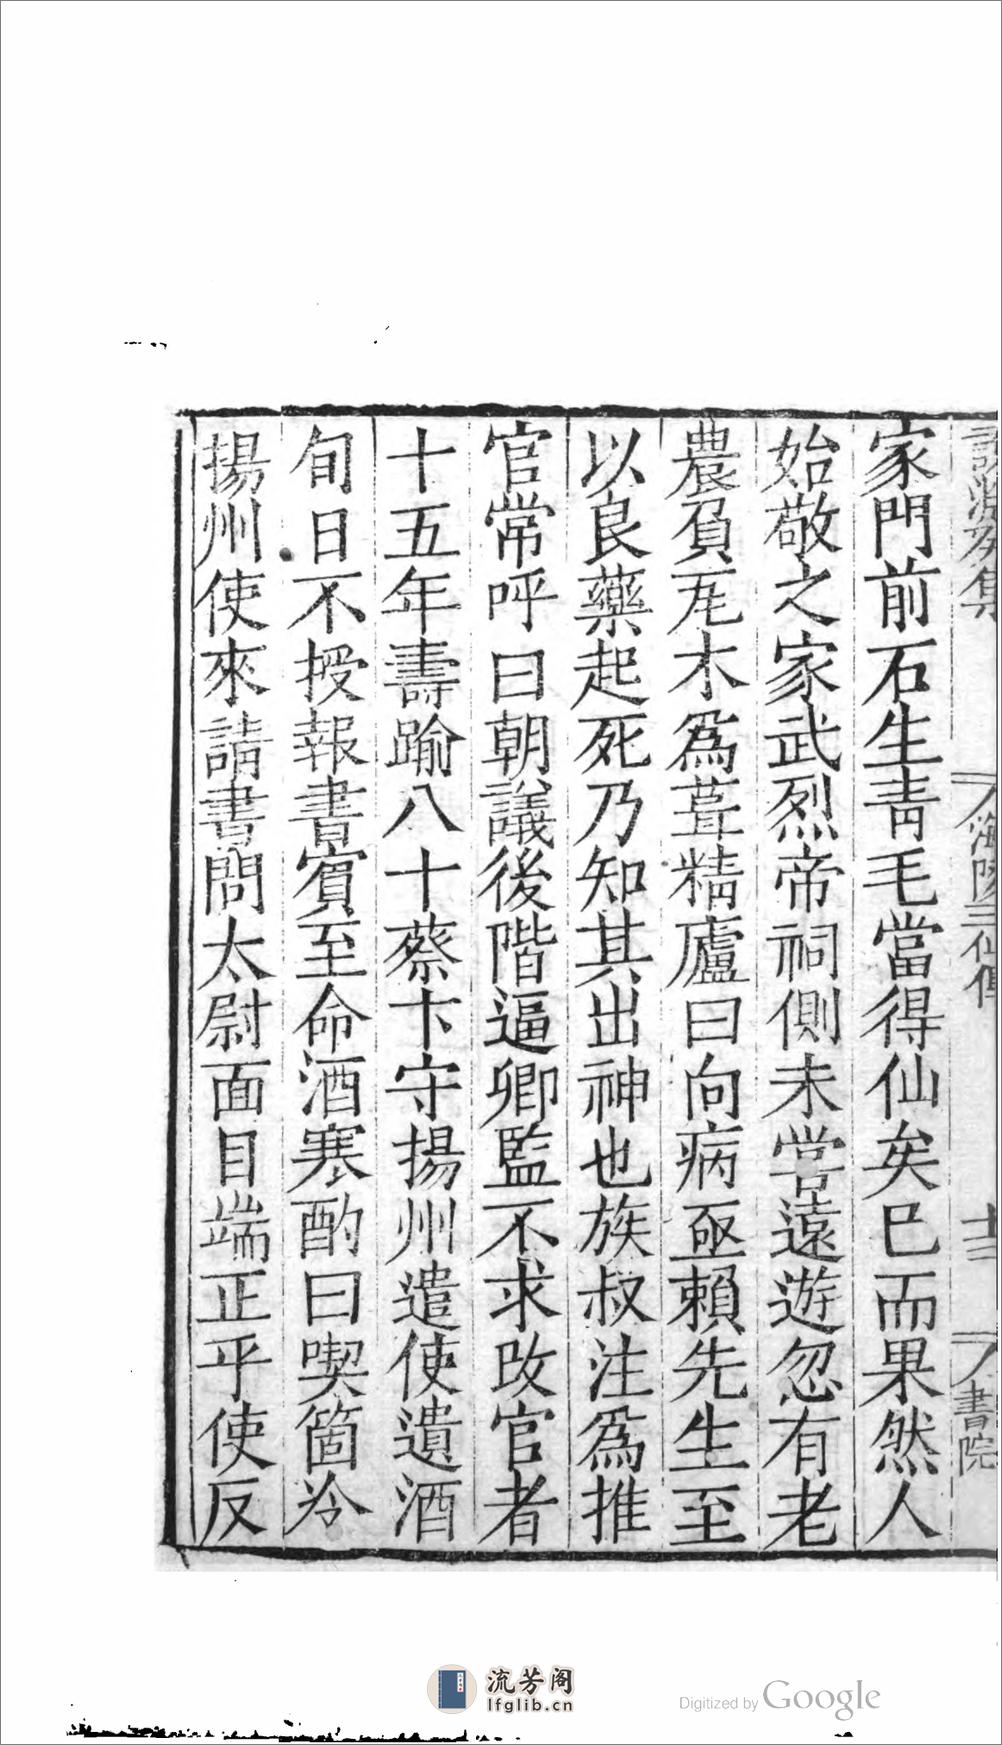 海陵三仙傳
十三
書院
家門前石生青毛當得仙矣已而果然人
始敬之家武烈帝祠側未嘗遠遊忽有老
農負瓦木爲葺精廬曰向病亟賴先生至
以良藥起死乃知其出神也族叔注爲推
官常呼曰朝議後階逼卿監不求改官者
十五年壽踰八十蔡卞守揚州遣使遺酒
旬日不授報書賓至命酒寒酌曰喫箇冷
揚州使來請書問太尉面目端正乎使反
流芳阁
lfglib.cn
Digitized by Google